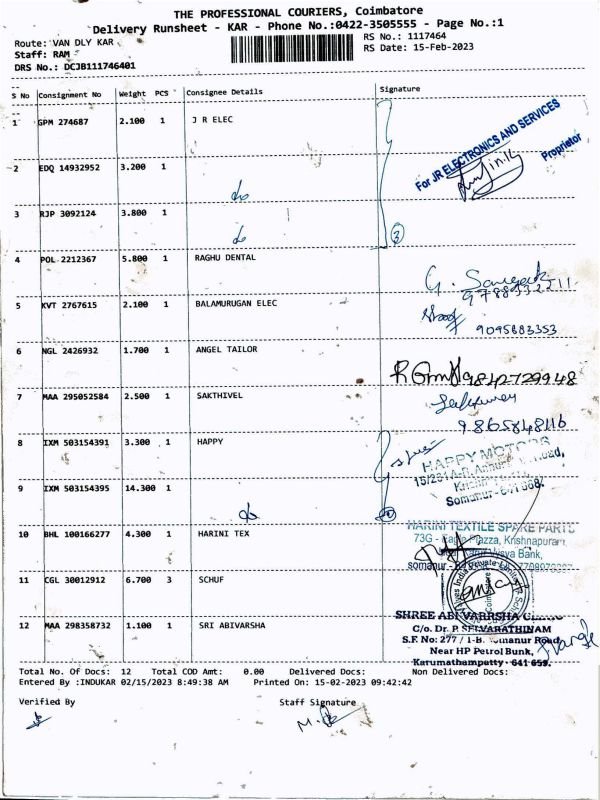 THE PROFESSIONAL COURIERS, Coimbatore
Delivery Runsheet - KAR - Phone No.:0422-3505555 - Page No.:1
Route: VAN DLY KAR
RS No.: 1117464
Staff: RAM
RS Date: 15-Feb-2023
DRS No.: DCJB111746401
S No Consignment No Weight PCS Consignee Details Signature
1 GPM 274687 2.100 1 J R ELEC
For JR ELECTRONICS AND SERVICES
Proprietor
2 EDQ 14932952 3.200 1
3 RJP 3092124 3.800 1
3
4 POL 2212367 5.800 1 RAGHU DENTAL
5 KVT 2767615 2.100 1 BALAMURUGAN ELEC
9095883353
6 NGL 2426932 1.700 1 ANGEL TAILOR
9842729948
7 MAA 295052584 2.500 1 SAKTHIVEL
9865848116
8 IXM 503154391 3.300 1 HAPPY
HAPPY MOTORS
Somanur - 641 668.
9 IXM 503154395 14.300 1
10 BHL 100166277 4.300 1 HARINI TEX
HARINI TEXTILE SPARE PARTS
73G - Eagle Plazza, Krishnapuram,
Vysya Bank,
11 CGL 30012912 6.700 3 SCHUF
12 MAA 298358732 1.100 1 SRI ABIVARSHA
SHREE ABI VARRSHA CLINIC
C/o. Dr. P. SELVARATHINAM
S.F. No: 277 / 1-B, Somanur Road,
Near HP Petrol Bunk,
Karumathampatty - 641 659.
Total No. Of Docs: 12 Total COD Amt: 0.00 Delivered Docs: Non Delivered Docs:
Entered By :INDUKAR 02/15/2023 8:49:38 AM Printed On: 15-02-2023 09:42:42
Verified By Staff Signature